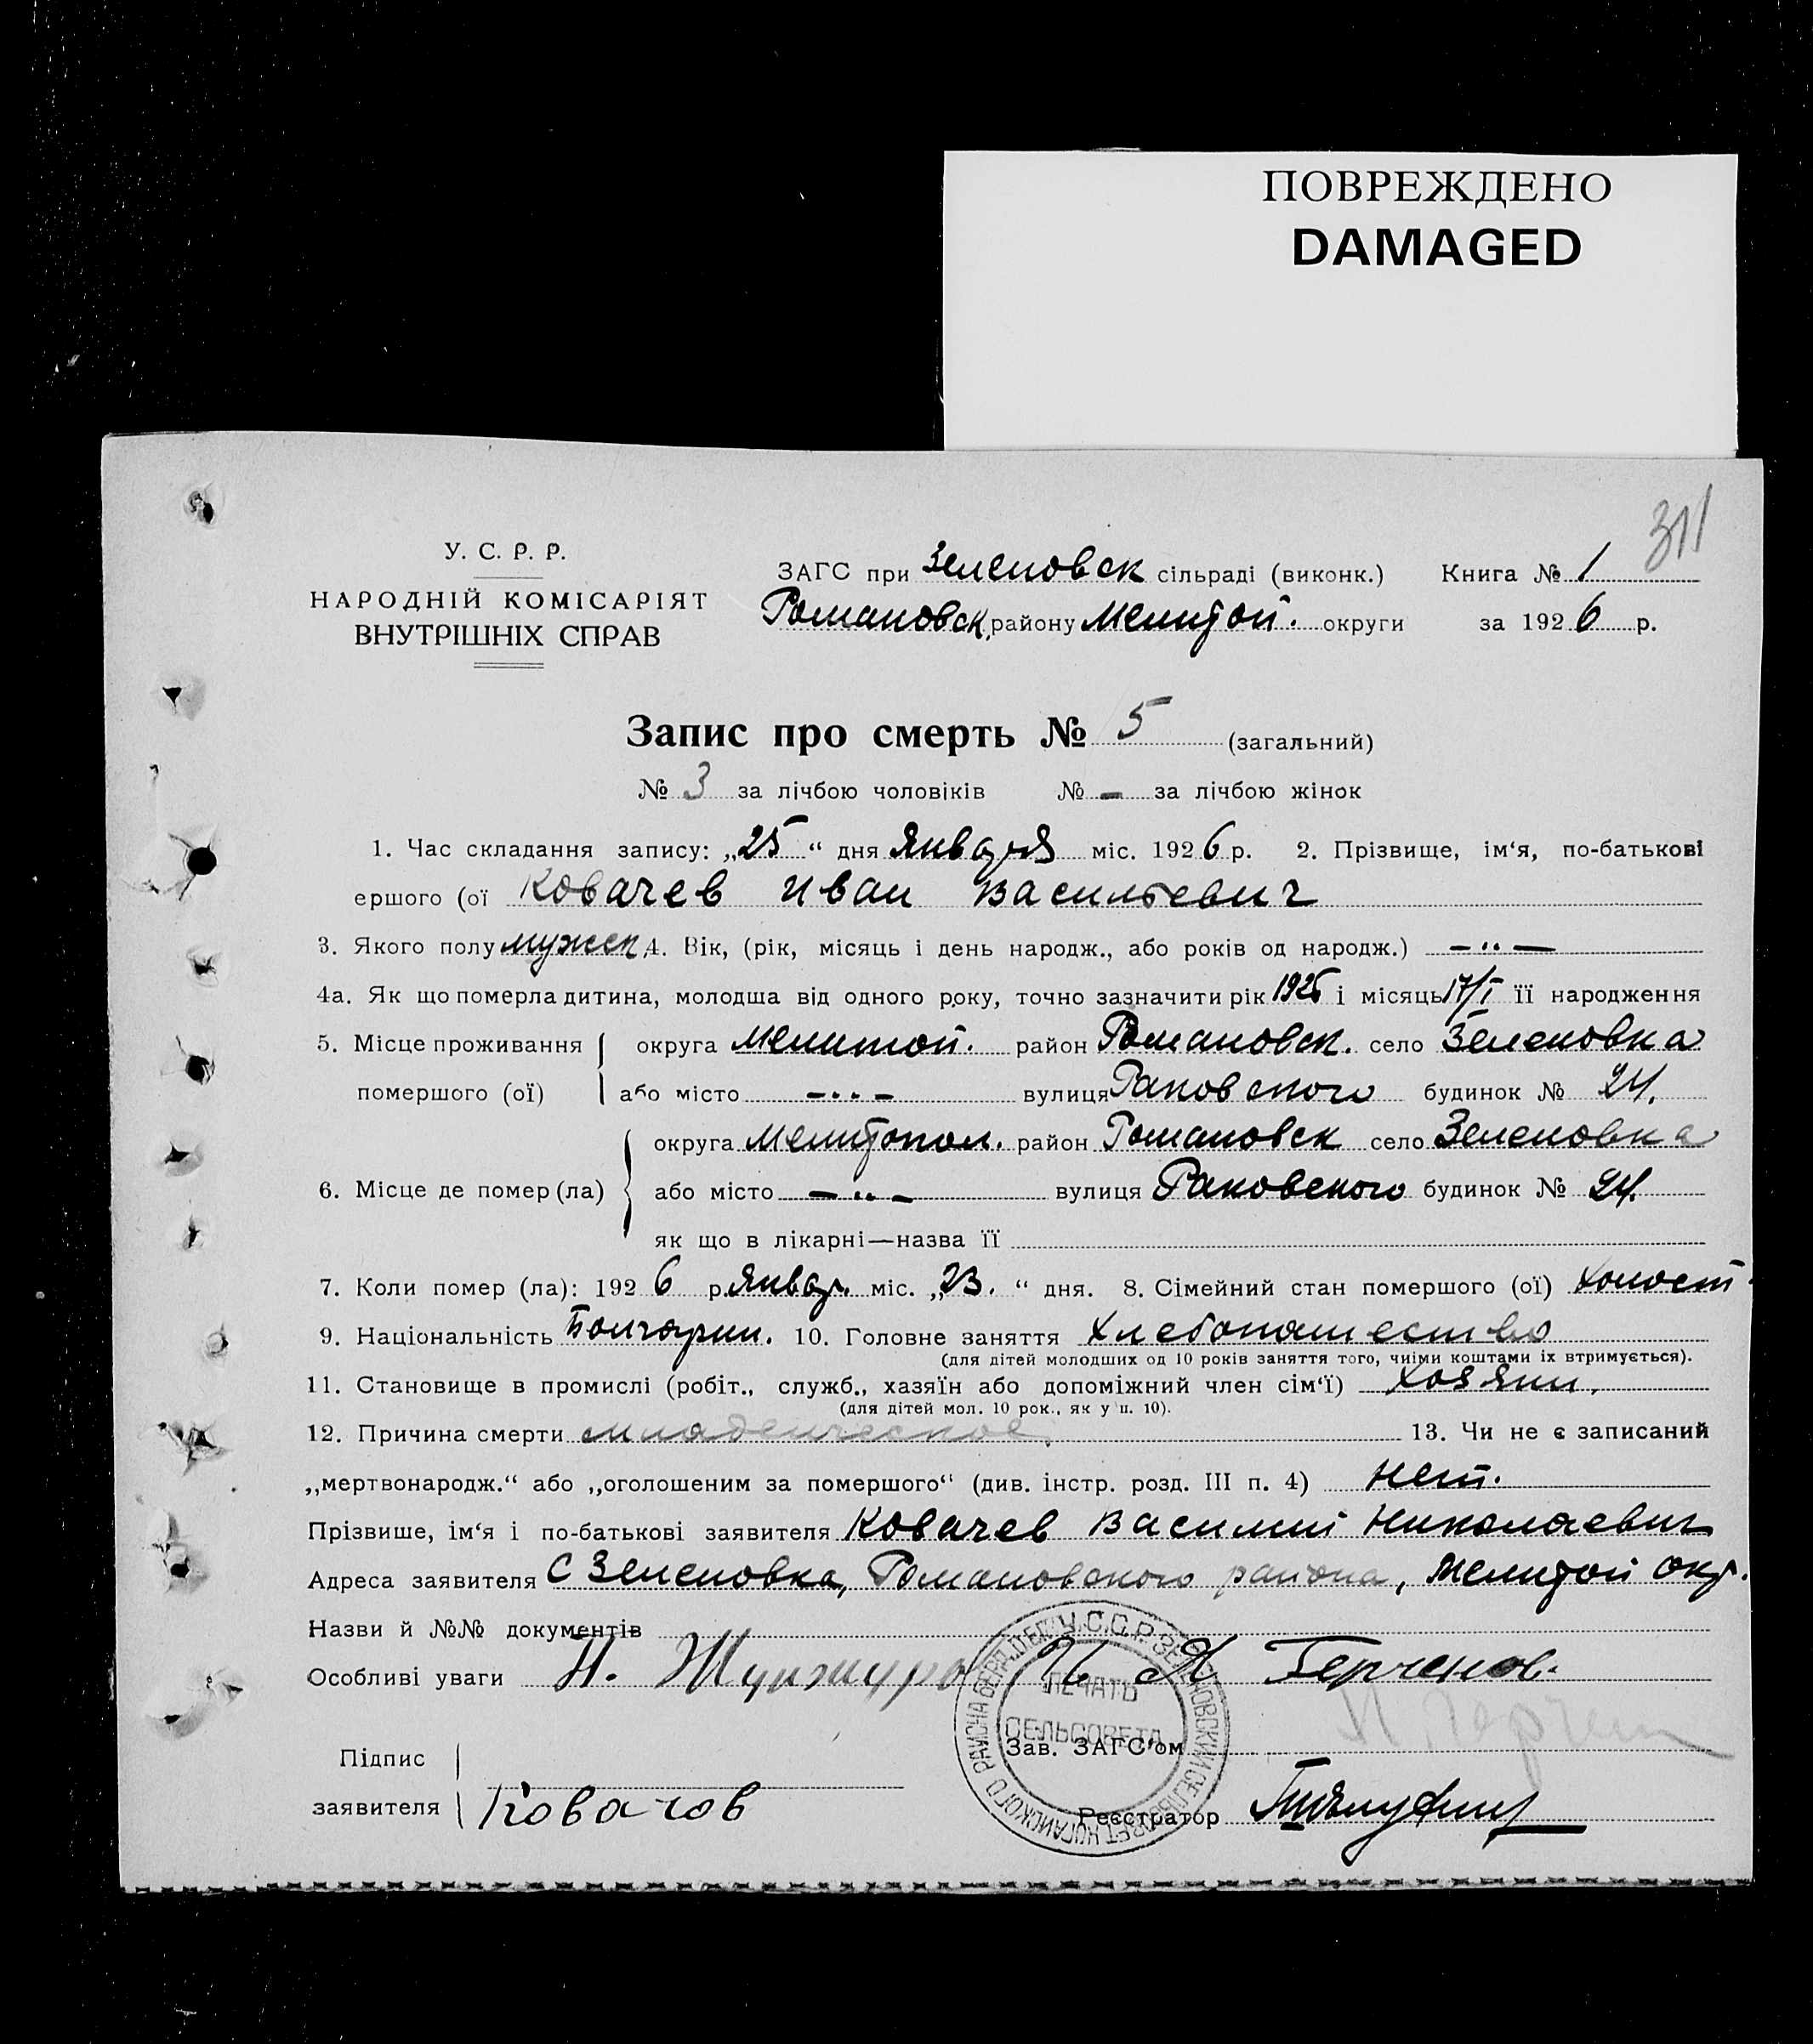 ПОВРЕЖДЕНО
DAMAGED
311
У. С. Р. Р.
НАРОДНІЙ КОМІСАРІЯТ
ВНУТРІШНІХ СПРАВ
ЗАГС при Зеленовск сільраді (виконк.) Книга № 1
Романовск. району Мелитоп. округи за 1926 р.
Запис про смерть № 5 (загальний)
№ 3 за лічбою чоловіків № – за лічбою жінок
1. Час складання запису: „25“ дня Января міс. 1926 р. 2. Прізвище, ім‘я, по-батькові
ершого (ої Ковачев Иван Васильевич
3. Якого полу мужск. 4. Вік, (рік, місяць і день народж., або років од народж.) – „ –
4а. Як що померла дитина, молодша від одного року, точно зазначити рік 1926 і місяць 17/I її народження
5. Місце проживання помершого (ої) округа Мелитоп. район Романовск. село Зеленовка
або місто – „ – вулиця Раковского будинок № 24.
6. Місце де помер (ла) округа Мелитопол. район Романовск село Зеленовка
або місто – „ – вулиця Раковского будинок № 24.
як що в лікарні—назва її
7. Коли помер (ла): 1926 р. Январ. міс. „23.“ дня. 8. Сімейний стан помершого (ої) холост.
9. Національність Болгарин. 10. Головне заняття Хлебопашество
(для дітей молодших од 10 років заняття того, чиїми коштами їх втримується).
11. Становище в промислі (робіт., служб., хазяїн або допоміжний член сім‘ї) Хозяин.
(для дітей мол. 10 рок., як у п. 10).
12. Причина смерти младенческое. 13. Чи не є записаний
„мертвонародж.“ або „оголошеним за помершого“ (див. інстр. розд. III п. 4) нет.
Прізвише, ім‘я і по-батькові заявителя Ковачев Василий Николаевич
Адреса заявителя С Зеленовка, Романовского района, Мелитоп окр.
Назви й №№ документів
Особливі уваги Н. Жунжура Герченов.
ПЕЧАТЬ
СЕЛЬСОВЕТА
Підпис заявителя Ковачов
Зав. ЗАГС‘ом
Реєстратор